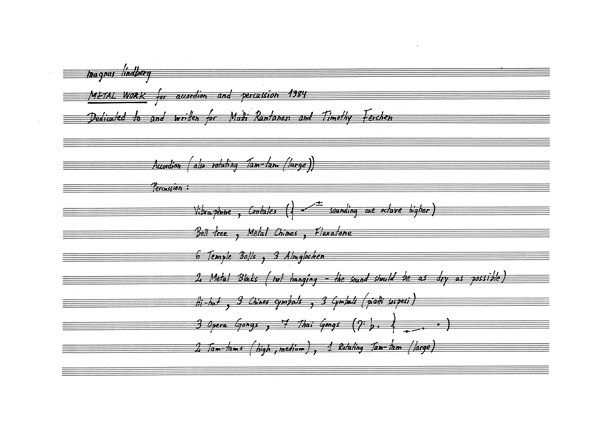 magnus lindberg
METAL WORK for accordion and percussion 1984
Dedicated to and written for Matti Rantanen and Timothy Ferchen
Accordion (also rotating Tam-tam (large))
Percussion :
Vibraphone , Crotales ( sounding one octave higher)
Bell tree , Metal Chimes , Flexatone
6 Temple Bells , 3 Almglocken
2 Metal Blocks (not hanging - the sound should be as dry as possible)
Hi-hat , 3 Chines cymbals , 3 Cymbals (piatti sospesi)
3 Opera Gongs , 7 Thai Gongs
2 Tam-tams (high, medium) , 1 Rotating Tam-tam (large)